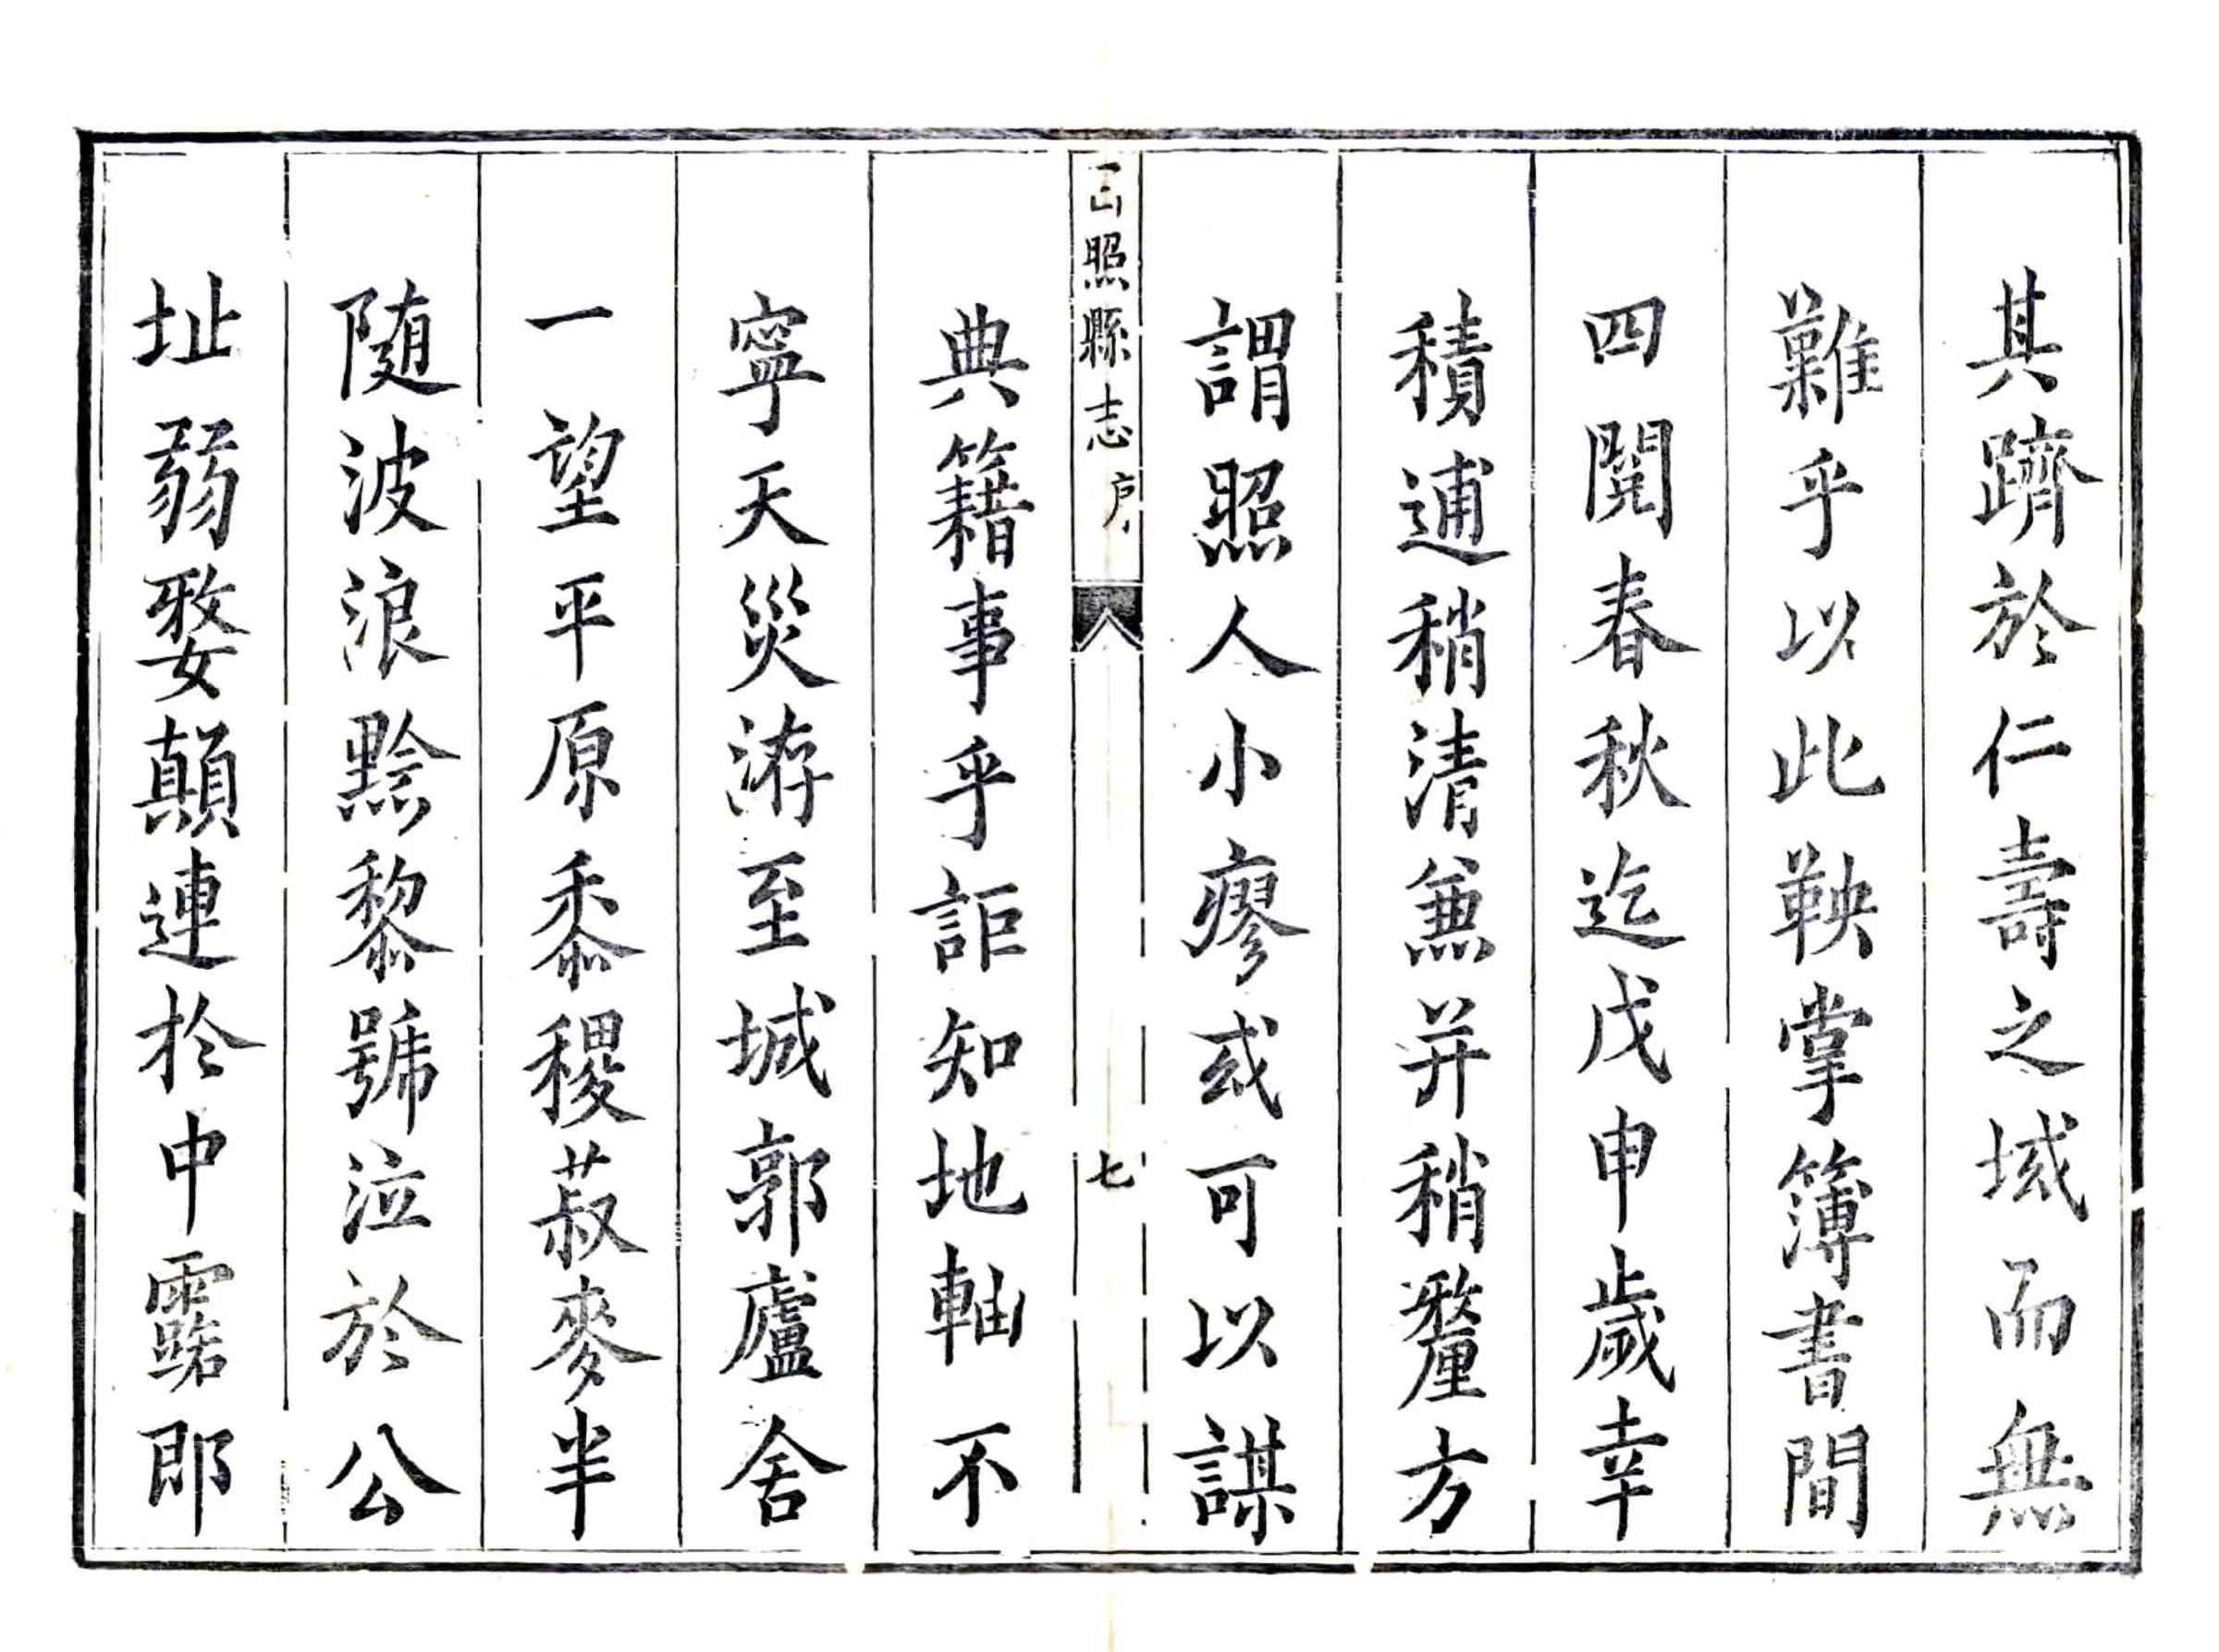 其躋於仁壽之域而無
難乎以此鞅掌簿書間
四閱春秋迄戊申歲幸
積逋稍清兼并稍釐方
謂照人小瘳或可以謀
日照縣志
序
七
典籍事乎詎知地軸不
寧天災洊至城郭廬舍
一望平原黍稷菽麥半
随波浪黔黎號泣於公
址弱婺顛連於中露郎